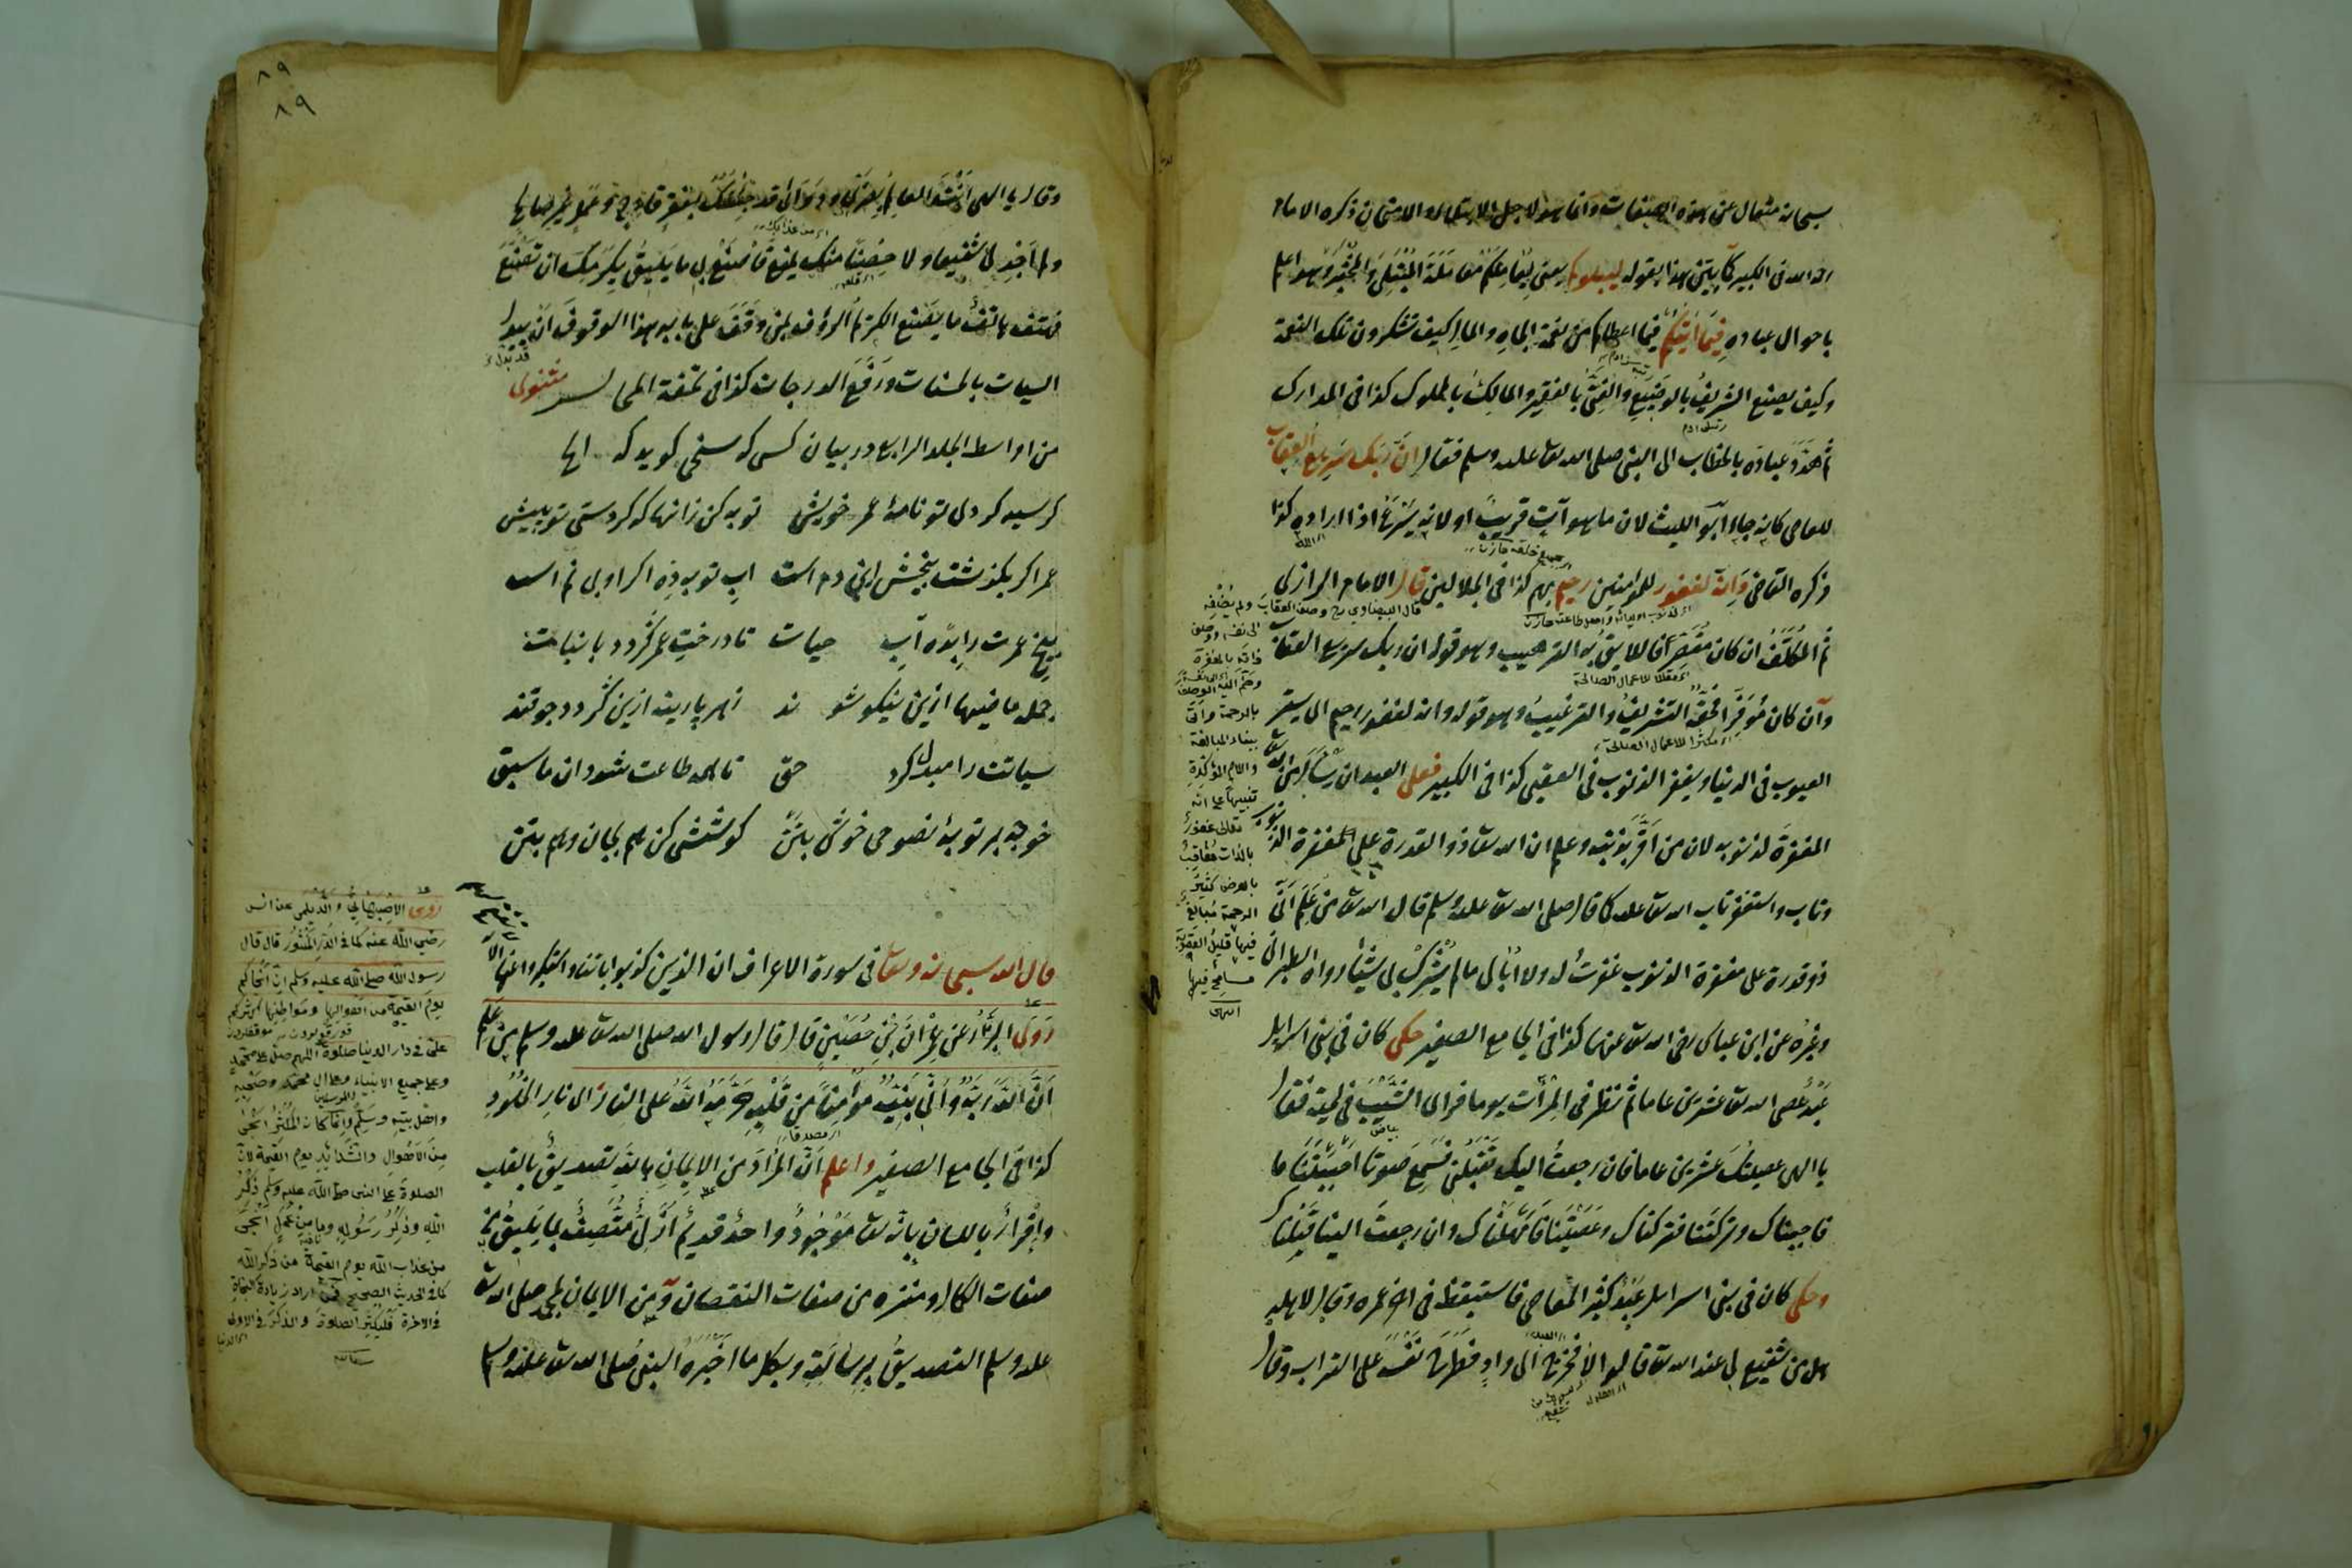 سبحانه متعال عن هذه الصفات وانما هو لاجل الابتلاء والامتحان ذكره الامام
الله في الكبير كما بين هذا بقوله ليبلوكم يعني ليعاملكم معاملة المبتلي والمختبر وهو اعلم
باحوال عباده فيما آتيكم فيما اعطاكم من نعمة الجاه والمال كيف تشكرون تلك النعمة
وكيف يصنع الشريف بالوضيع والغني بالفقير والمالك بالمملوك كذا في المدارك
ثم هدد عباده بالخطاب الى النبي صلى الله تعالى عليه وسلم فقال ان ربك سريع العقاب
للعاصي كانه جاء ابو الليث لان ما هو آت قريب او لانه يسرع اذا اراده كذا
ذكره القاضي وانه لغفور للمؤمنين رحيم بهم كذا في الجلالين قال الامام الرازي
ثم المكلف ان كان مقصرا فاللايق به الترهيب وهو قوله ان ربك سريع العقاب
وان كان موفرا فحقه التشريف والترغيب وهو قوله وانه لغفور رحيم اي يستر
العيوب في الدنيا ويغفر الذنوب في العقبى كذا في الكبير فعلى العبد ان يسأل من الله تعالى
المغفرة لذنوبه لان من اقر بذنبه وعلم ان الله تعالى ذو القدرة على مغفرة الذنوب
وتاب واستغفر تاب الله تعالى عليه كما قال صلى الله تعالى عليه وسلم قال الله تعالى من علم اني
ذو قدرة على مغفرة الذنوب غفرت له ولا ابالي ما لم يشرك بي شيئا رواه الطبراني
وغيره عن ابن عباس رضي الله تعالى عنهما كذا في الجامع الصغير حكى كان في بني اسرائيل
عبد عصى الله تعالى عشرين عاما ثم نظر في المرآت يوما فراى الشيب في لحيته فقال
يا الهي عصيتك عشرين عاما فان رجعت اليك تقبلني فسمع صوتا احببتنا ما
فاحببناك وتركتنا فتركناك وعصيتنا فامهلناك وان رجعت الينا قبلناك
وحكى كان في بني اسرائيل عبد كثير المعاصي فاستيقظ في آخر عمره وقال لاهله
هل من شفيع لي عند الله تعالى قالوا لا فخرج الى واد فطرح نفسه على التراب وقال
قال البيضاوي رح وصف العقاب ولم يضفه
الى نفسه ووصف
ذاته بالمغفرة
وضم اليه الوصف
بالرحمة واتى
ببناء المبالغة
واللام المؤكدة
تنبيها على انه
تعالى غفور
بالذات معاقب
بالعرض كثير
الرحمة مبالغ
فيها قليل العقوبة
مسامح فيها
انتهى
٨٩
٨٩
ولم اجد لي شفيعا ولا حصنا منك يمنع فاصنع بي ما يليق بكرمك ان تصنع
فهتف هاتف ما يصنع الكريم الرؤف بمن وقف على بابه هذا الوقوف ان يبدل
السيات بالحسنات ورفع الدرجات كذا في تحفة المجالس مثنوى
من اواسط المجلد الرابع در بيان كسى كه سخن كويد كه الخ
كر سيه كردى تو نامهٔ عمر خويش توبه كن زانها كه كردستى تو بيش
عمر اكر بكذشت بيخش اين دم است آب توبه ده اكر او بى نم است
بيخ عمرت را بده آب حيات تا درخت عمر كردد با نبات
جمله ماضيها ازين نيكو شوند زهر پارينه ازين كردد چو قند
سيآتت را مبدل كرد حق تا همه طاعت شود آن ما سبق
خواجه بر توبهٔ نصوحى خوش بتن كوششى كن هم بجان و هم بتن
قال الله سبحانه وتعالى في سورة الاعراف ان الذين كذبوا باياتنا واستكبروا عنها الآية
روى البزار عن عمران بن حصين قال قال رسول الله صلى الله تعالى عليه وسلم من علم
ان الله ربه واني نبيه مؤمنا من قلبه حرمه الله على النار اى نار الخلود
كذا في الجامع الصغير واعلم ان المراد من الايمان بالله تصديق بالقلب
واقرار باللسان بانه تعالى موجود واحد قديم ازلي متصف بما يليق من
صفات الكمال ومنزه من صفات النقصان ومن الايمان لمحمد صلى الله تعالى
عليه وسلم التصديق برسالته وبكل ما اخبره النبي صلى الله تعالى عليه وسلم
روى الاصبهاني والديلمي عن انس
رضي الله عنه كما في الدر المنثور قال قال
رسول الله صلى الله عليه وسلم ان انجاكم
يوم القيمة من اهوالها ومواطنها اكثركم
علي في دار الدنيا صلوة اللهم صل على محمد
وعلى جميع الانبياء وعلى آل محمد وصحبه
واهل بيته وسلم وانما كان المكثر انجى
من الاهوال والشدائد يوم القيمة لان
الصلوة على النبي صلى الله عليه وسلم ذكر
الله وذكر رسوله وما من عمل انجى
من عذاب الله يوم القيمة من ذكر الله
كما في الحديث الصحيح فمن اراد زيادة النجاة
في الآخرة فليكثر الصلوة والذكر في الاولى